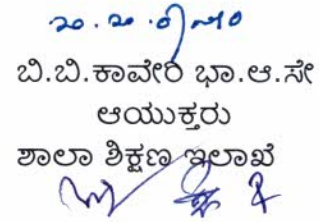 ಬಿ.ಬಿ.ಕಾವೇರಿ ಭಾ.ಆ.ಸೇ
ಆಯುಕ್ತರು
ಶಾಲಾ ಶಿಕ್ಷಣ ಇಲಾಖೆ